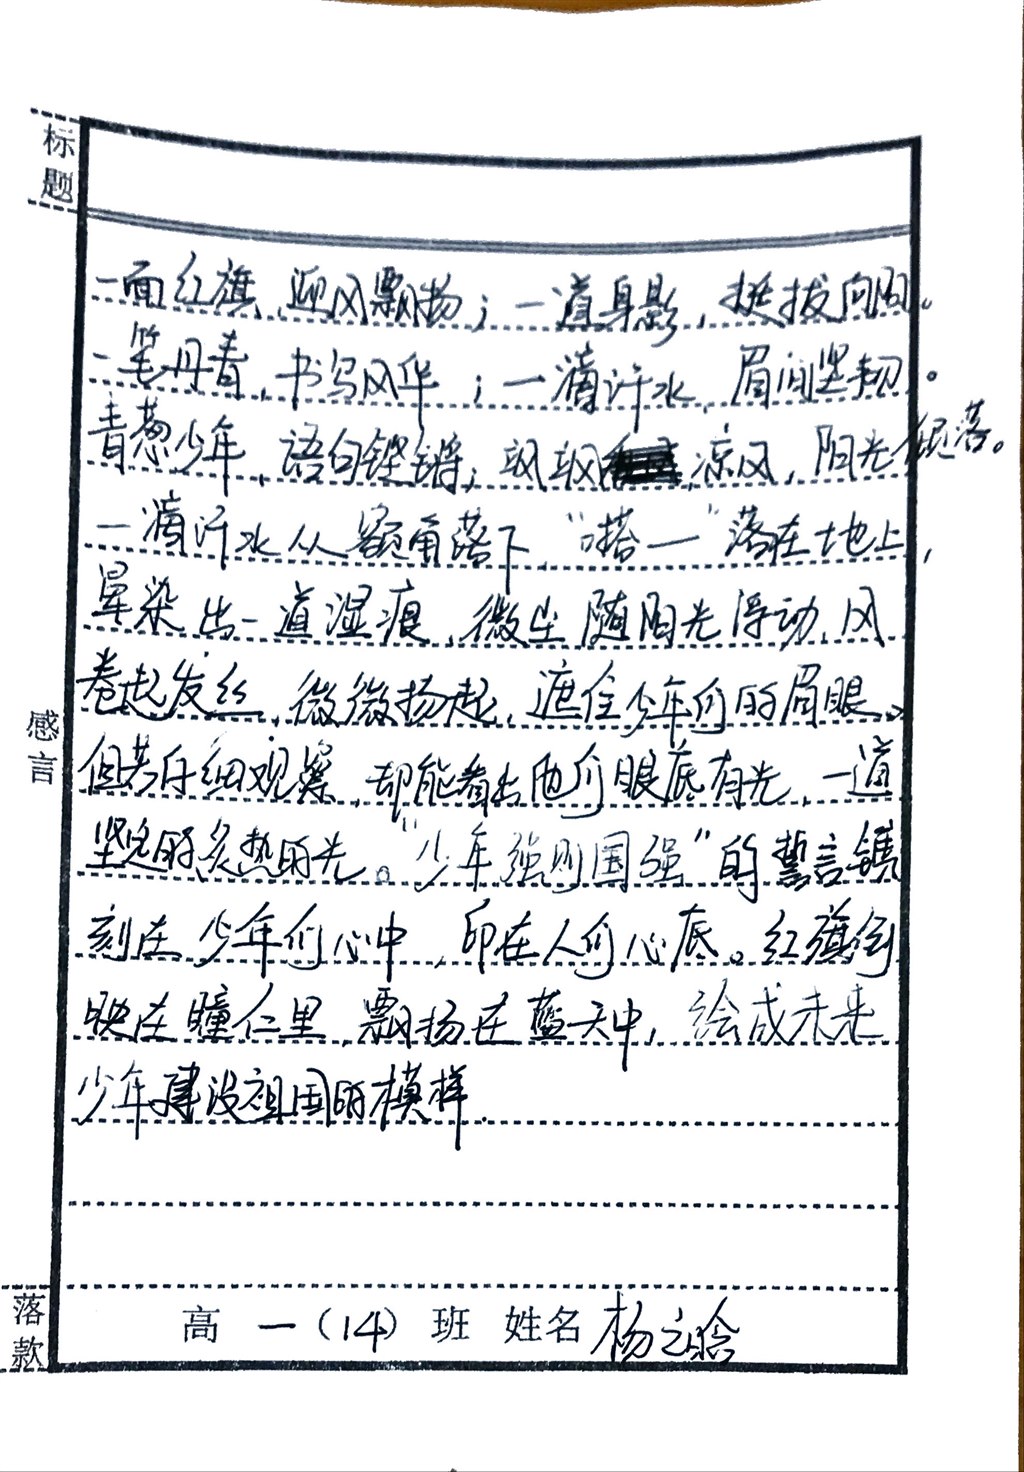 标题
一面红旗，迎风飘扬；一道身影，挺拔向阳。
一笔丹青，书写风华；一滴汗水，眉间坚韧。
青葱少年，语句铿锵；飒飒凉风，阳光倾落。
一滴汗水从额角落下，“嗒—”落在地上，
晕染出一道湿痕，微尘随阳光浮动，风
卷起发丝，微微扬起，遮住少年们的眉眼。
但若仔细观察，却能看出他们眼底有光，一道
坚定的炙热的光。“少年强则国强”的誓言镌
刻在少年们心中，印在人们心底。红旗倒
映在瞳仁里，飘扬在蓝天中，绘成未来
少年建设祖国的模样.
感言
落款
高一（14）班 姓名 杨之晗